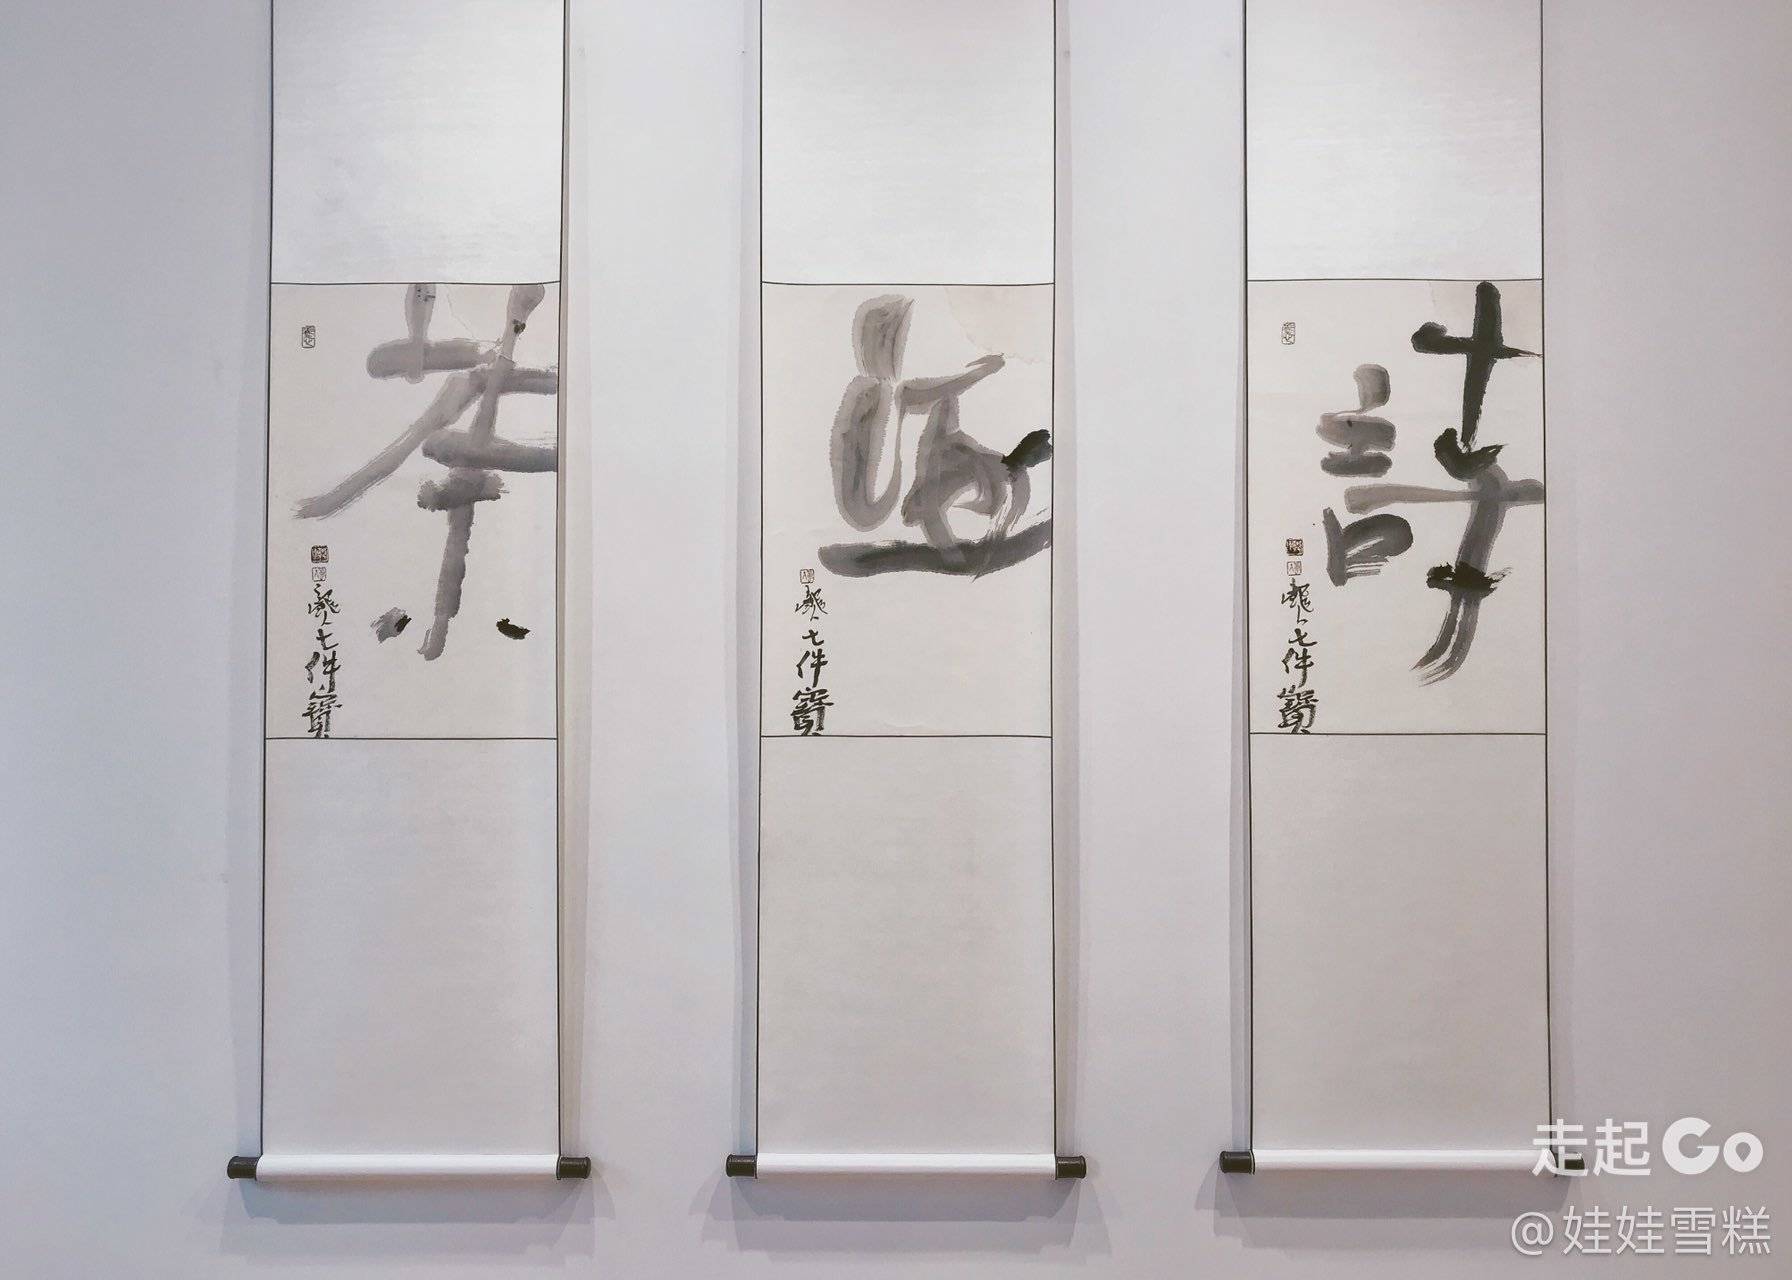 詩
七件寶
酒
七件寶
茶
七件寶
走起Go
@娃娃雪糕